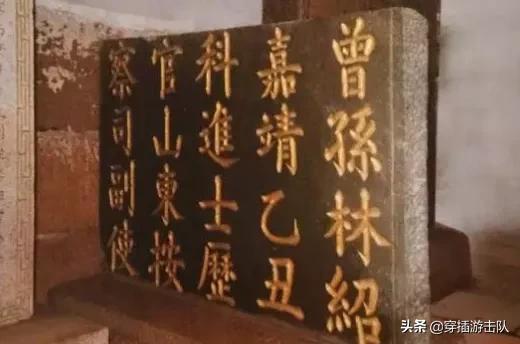 曾孫林紹
嘉靖乙丑
科進士歷
官山東按
察司副使
头条 @穿插游击队